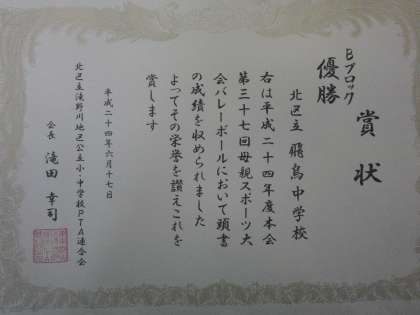 賞状
Bブロック
優勝
北区立 飛鳥中学校
右は平成二十四年度本会
第三十七回母親スポーツ大
会バレーボールにおいて頭書
の成績を収められました
よってその栄誉を讃えこれを
賞します
平成二十四年六月十七日
北区立滝野川地区公立小・中学校PTA連合会
会長 滝田 幸司